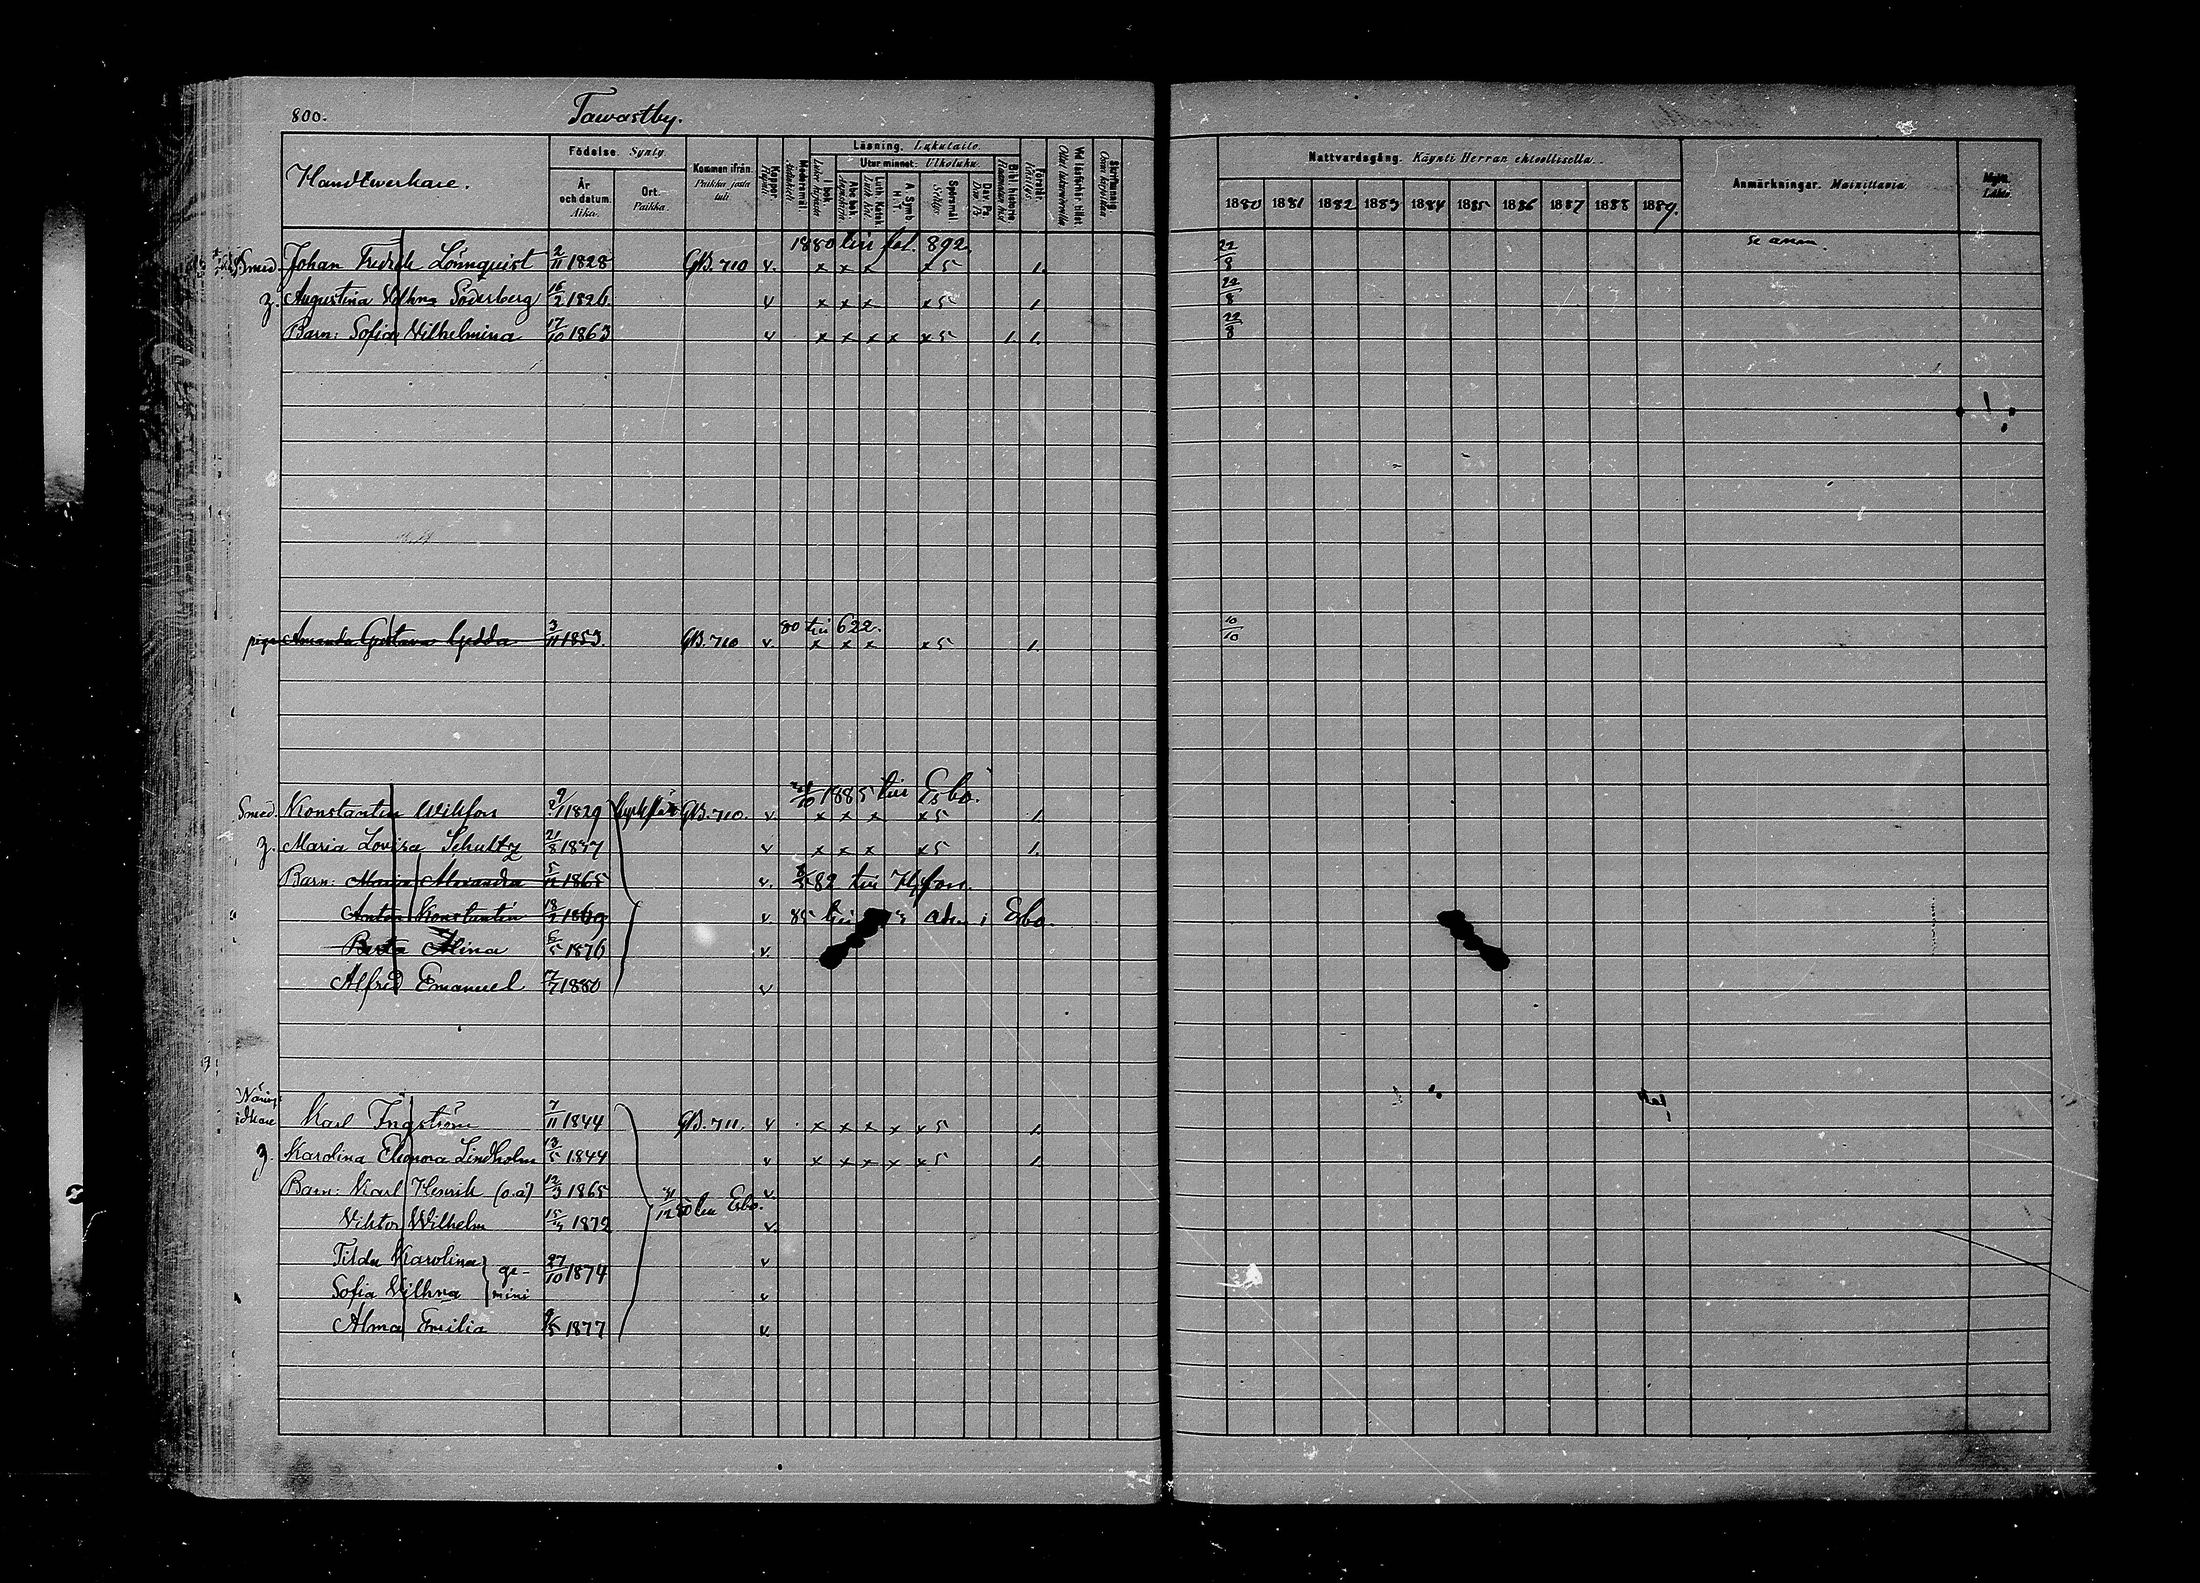 800.
Tawastby.
Handtwerkare.
Födelse. Synty.
År och datum. Aika.
Ort. Paikka.
Kommen ifrån. Paikka josta tuli
Koppor. Rupuli.
Läsning. Lukutaito.
Utur minnet: Ulkoluku.
Nattvardsgång. Käynti Herran ehtoollisella.
1880 1881 1882 1883 1884 1885 1886 1887 1888 1889.
Anmärkningar. Muistutuksia
1880 till fol. 892. se anm.
Smed. Johan Fredrik Lönnquist 2/11 1828 GB. 710 v. x x x x 5 1. 22/8
h. Augustina Vilhna Söderberg 16/2 1826 v x x x x 5 1. 22/8
Barn: Sofia Vilhelmina 17/10 1863 v x x x x x 5 1. 1. 22/8
80 till 622.
piga Amanda Gustava Gedda 3/11 1853. GB. 710 v. x x x x 5 1. 10/10
/10 1885 till Esbo.
Smed. Konstantin Wikfors 1829 GB. 710. v x x x x 5 1.
h. Maria Lovisa Schultz 21/8 1837 v x x x x 5 1.
Barn: Maria Alexandra 5/12 1865 v. 82 till Hfors.
Anton Konstantin 18/2 1869 v. 85 till i Esbo.
Berta Alina 6/5 1876 v.
Alfred Emanuel 17/7 1880 v
Närings
idkare Karl Engström 7/11 1844 GB. 711. v x x x x x 5 1.
h. Karolina Eleonora Lindholm 13/5 1844 v x x x x x 5 1.
Barn: Karl Henrik (o.ä) 12/3 1865 v
31/12 80 till Esbo.
Viktor Wilhelm 15/ 1872 v.
Tilda Karolina v
ge- 27/10 1874
Sofia Vilhna mini v
Alma Emilia 1877 v.